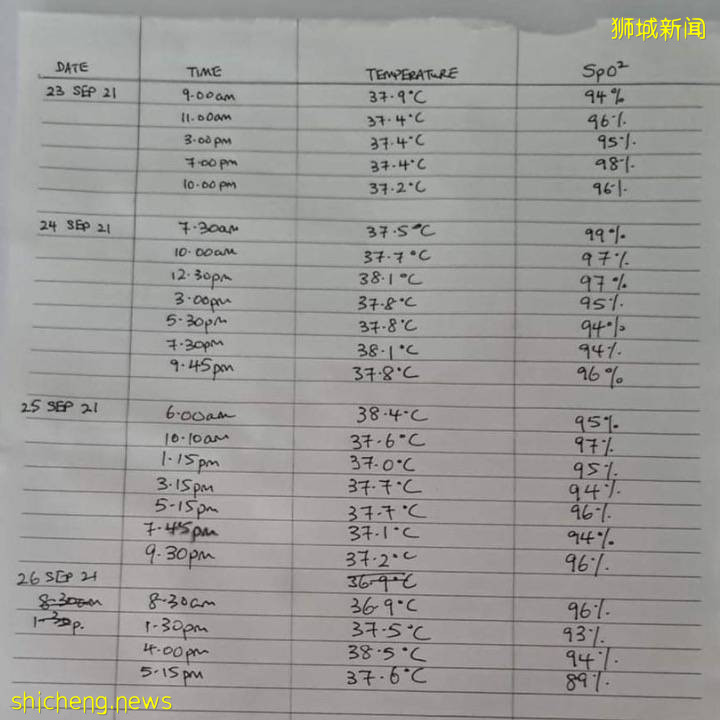 狮城新闻
DATE TIME TEMPERATURE SpO²
23 SEP 21 9.00am 37.9°C 94%
11.00am 37.4°C 96%
3.00pm 37.4°C 95%
7.00pm 37.4°C 98%
10.00pm 37.2°C 96%
24 SEP 21 7.30am 37.5°C 99%
10.00am 37.7°C 97%
12.30pm 38.1°C 97%
3.00pm 37.8°C 95%
5.30pm 37.8°C 94%
7.30pm 38.1°C 94%
9.45pm 37.8°C 96%
25 SEP 21 6.00am 38.4°C 95%
10.10am 37.6°C 97%
1.15pm 37.0°C 95%
3.15pm 37.7°C 94%
5.15pm 37.7°C 96%
7.45pm 37.1°C 94%
9.30pm 37.2°C 96%
26 SEP 21 36.9°C
8.30am 8.30am 36.9°C 96%
1.30p. 1.30pm 37.5°C 93%
4.00pm 38.5°C 94%
5.15pm 37.6°C 89%
shicheng.news